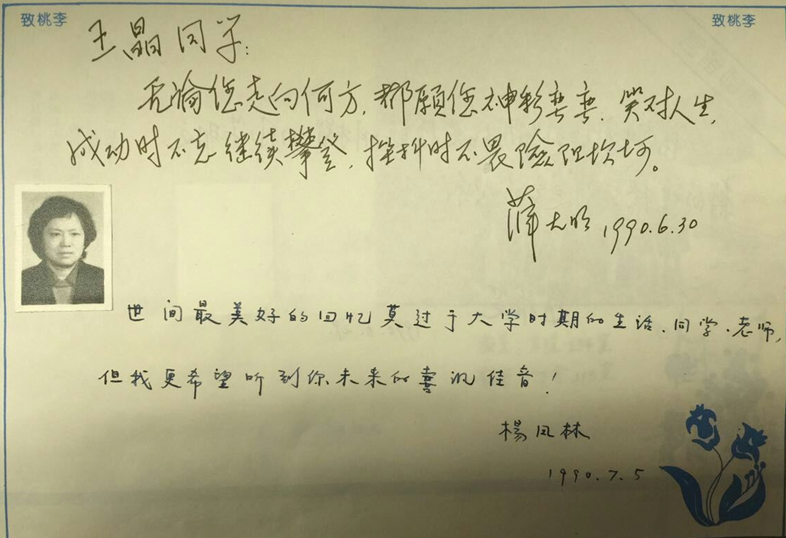 致桃李 致桃李
王晶同学:
无论您走向何方,都愿您神彩奕奕、笑对人生,
成功时不忘继续攀登,挫折时不畏險阻坎坷。
1990.6.30
世间最美好的回忆莫过于大学时期的生活、同学、老师,
但我更希望听到你未来的喜讯佳音!
楊凤林
1990.7.5